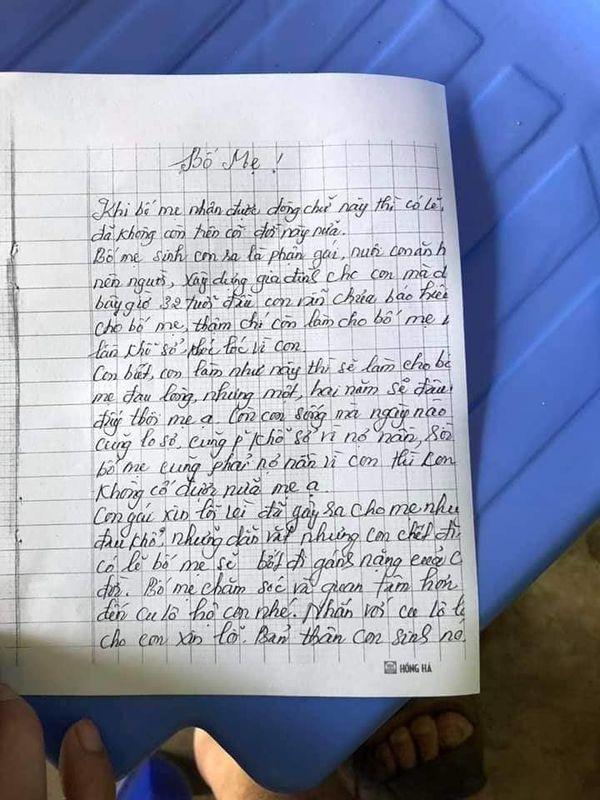 Bố Mẹ!
Khi bố mẹ nhận được dòng chữ này thì có lẽ
đã không còn trên cõi đời này nữa.
Bố mẹ sinh con ra là phận gái, nuôi con ăn h
nên người, xây dựng gia đình cho con mà đ
bây giờ 32 tuổi đầu con vẫn chưa báo hiếu
cho bố mẹ, thậm chí còn làm cho bố mẹ
lần khổ sở, vì con.
Con biết, con làm như này thì sẽ làm cho bố
mẹ đau lòng, nhưng một, hai năm sẽ
thôi mẹ ạ. Còn con sống mà ngày nào
cũng lo sợ, cũng khổ sở vì nợ nần,
bố mẹ cũng phải nợ nần vì con thì con
không cố được nữa mẹ ạ.
Con gái xin lỗi lại đã gây sa cho mẹ như
đau khổ những dằn vặt nhưng con chết đi
có lẽ bố mẹ sẽ bớt đi gánh nặng cuộc
đời. Bố mẹ chăm sóc và quan tâm hơn
đến cu lô hộ con nhé. Nhắn với cu lô
cho con xin lỗi. Bản thân con sinh nó
HỒNG HÀ